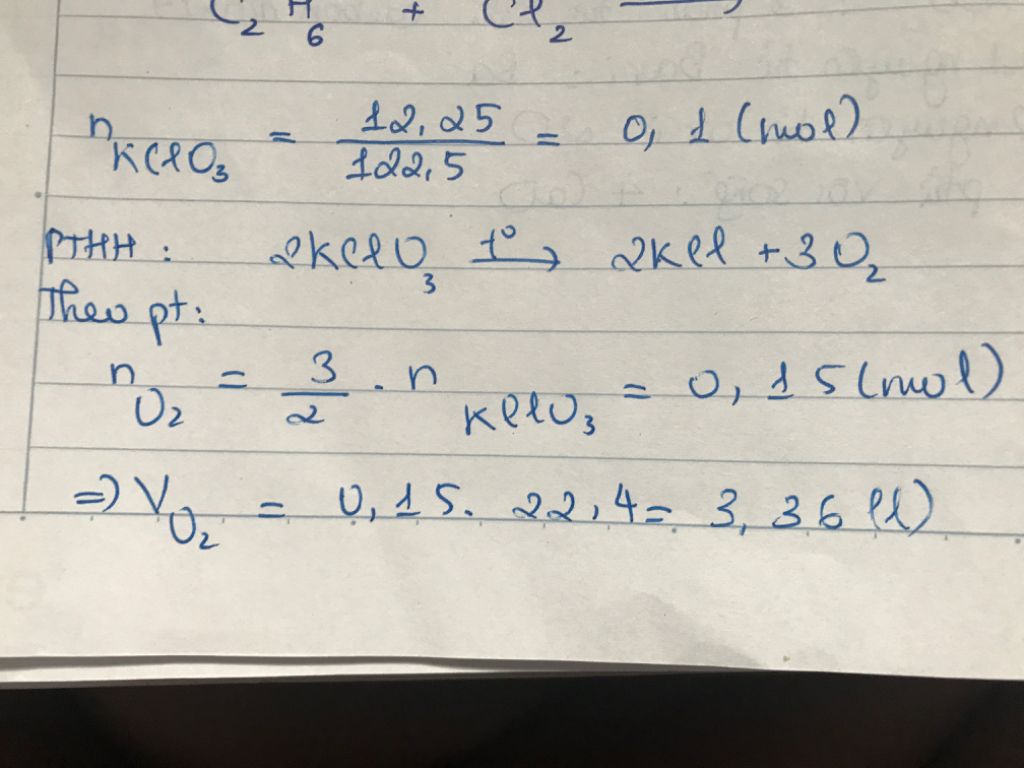 C₂H₆ + Cl₂ →
n KClO₃ = 12,25 / 122,5 = 0,1 (mol)
PTHH : 2KClO₃ t° → 2KCl + 3O₂
Theo pt:
n O₂ = 3/2 . n KClO₃ = 0,15 (mol)
=> V O₂ = 0,15. 22,4 = 3,36 (l)